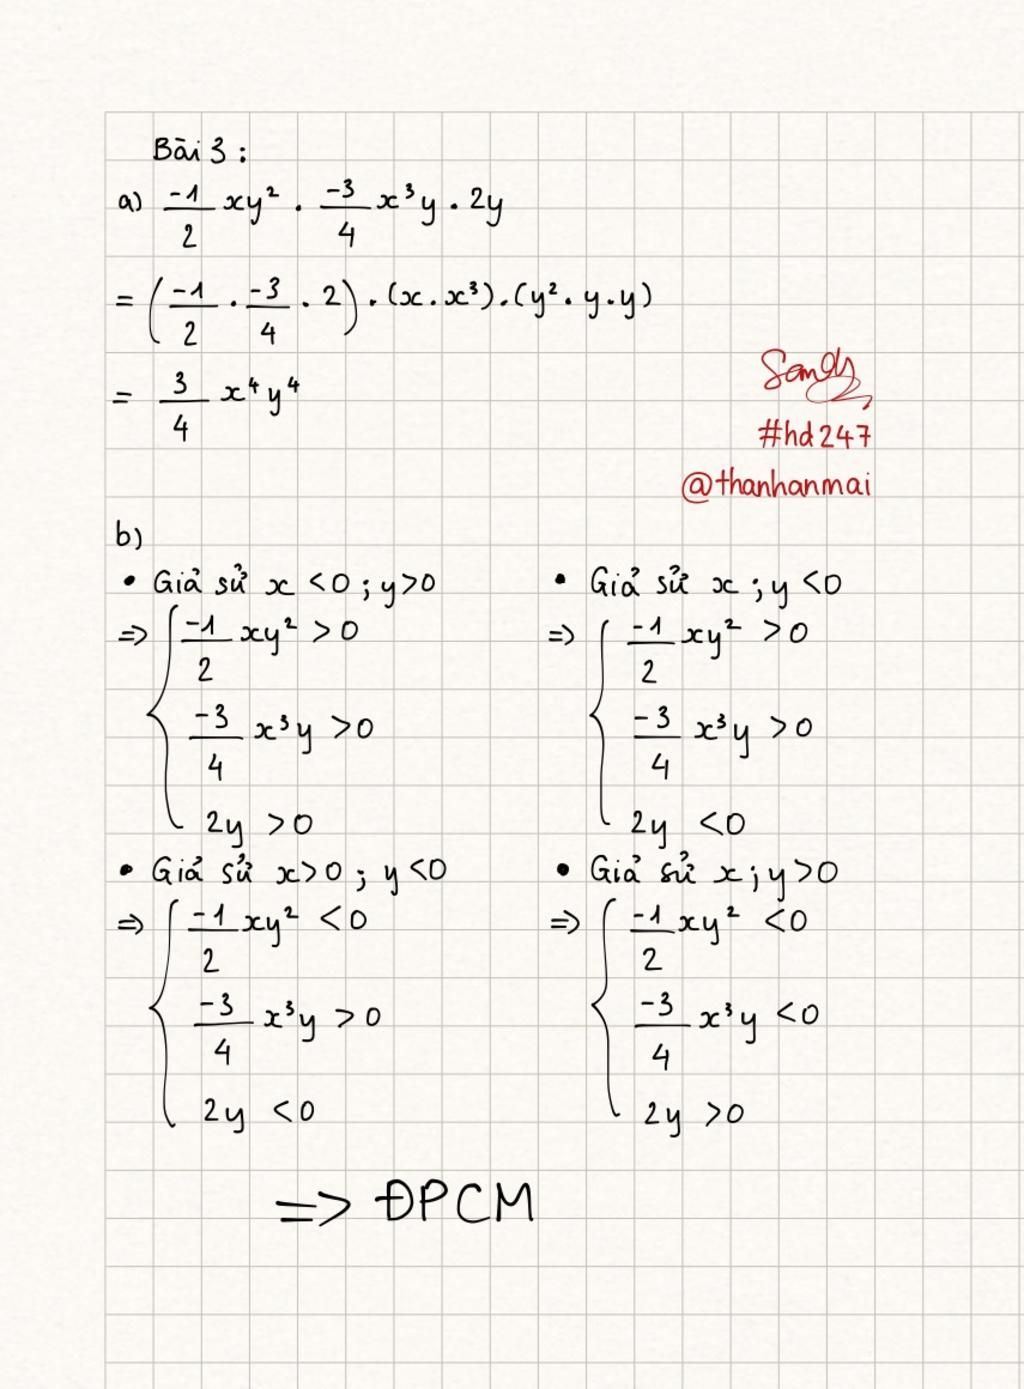 Bài 3 :
a) -1/2 xy² . -3/4 x³y . 2y
= (-1/2 . -3/4 . 2) . (x . x³) . (y² . y . y)
= 3/4 x⁴y⁴
Sandy
#hd247
@thanhanmai
b)
• Giả sử x <0 ; y>0
=> { -1/2 xy² >0
-3/4 x³y >0
2y >0
• Giả sử x ; y <0
=> { -1/2 xy² >0
-3/4 x³y >0
2y <0
• Giả sử x>0 ; y <0
=> { -1/2 xy² <0
-3/4 x³y >0
2y <0
• Giả sử x ; y >0
=> { -1/2 xy² <0
-3/4 x³y <0
2y >0
=> ĐPCM